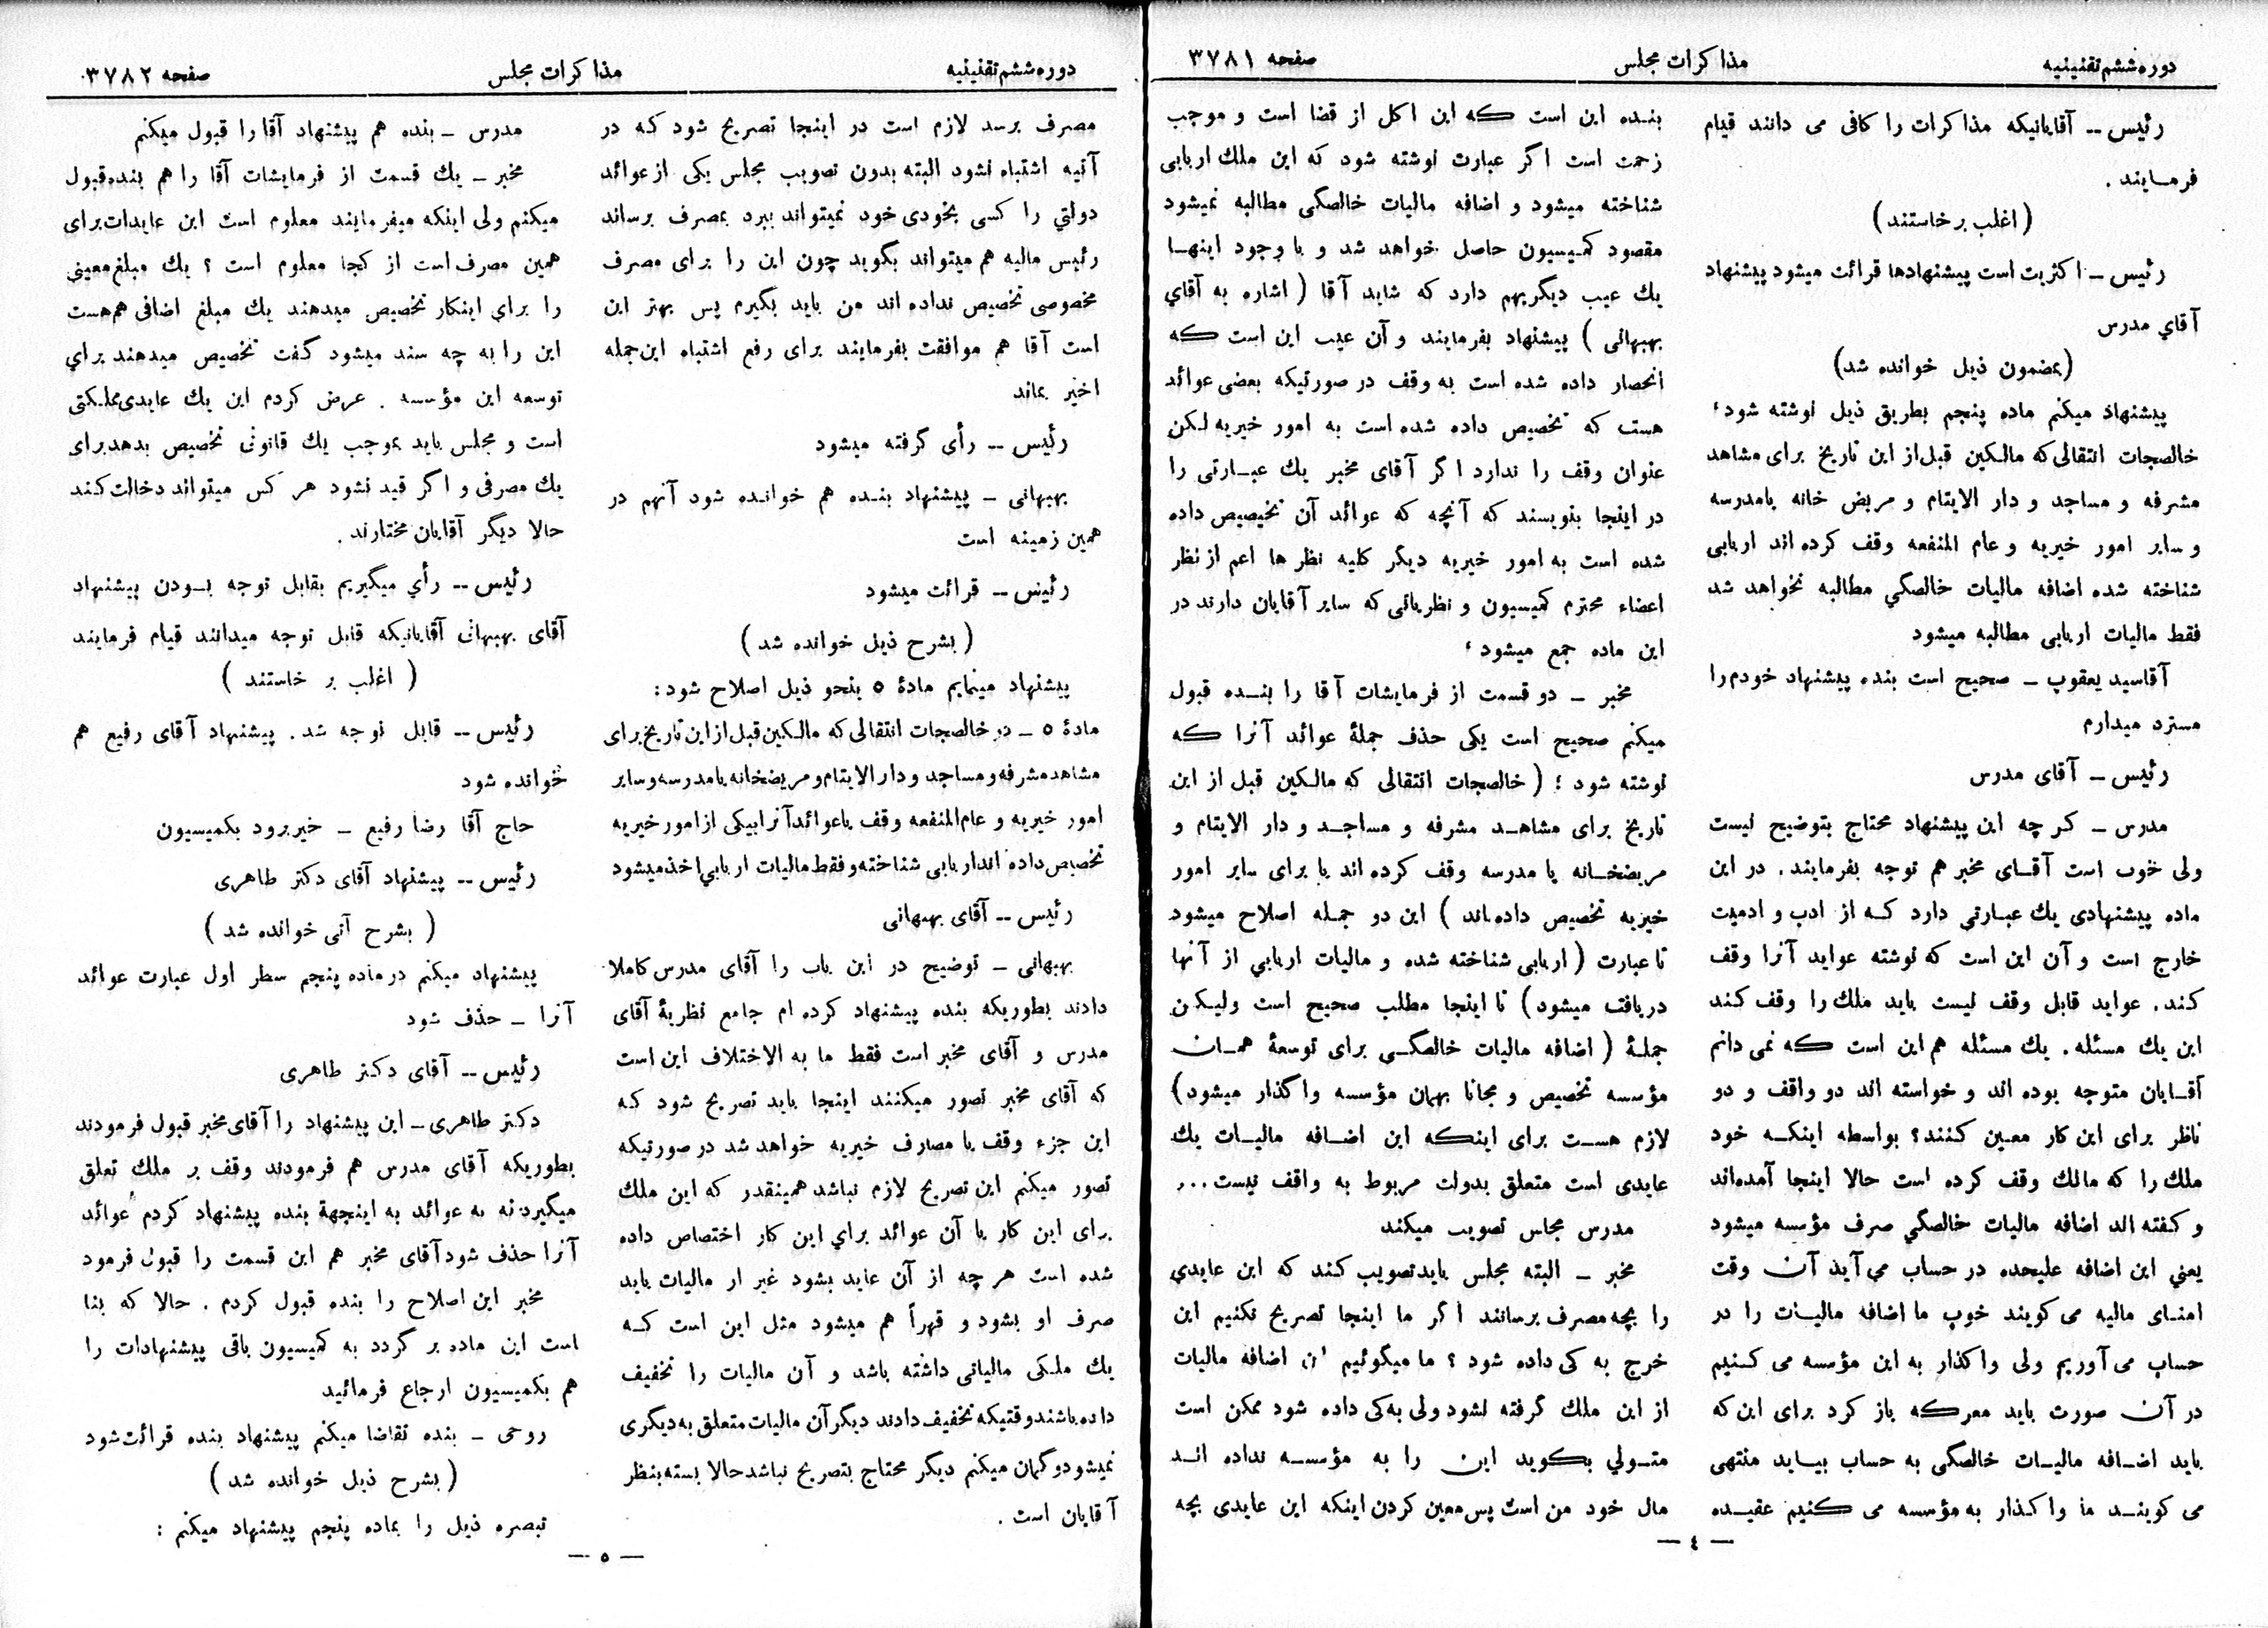 دوره ششم تقنینیه
مذاکرات مجلس
صفحه ۳۷۸۱
رئیس -- آقایانیکه مذاکرات را کافی می دانند قیام
فرمـایند .
( اغلب برخاستند )
رئیس - اکثریت است پیشنهادها قرائت میشود پیشنهاد
آقاي مدرس
(بمضمون ذیل خوانده شد)
پیشنهاد میکنم ماده پنجم بطریق ذیل نوشته شود ؛
خالصجات انتقالی که مالکین قبل از این تاریخ برای مشاهد
مشرفه و مساجد و دار الایتام و مریض خانه یا مدرسه
و سایر امور خیریه و عام المنفعه وقف کرده اند اربابی
شناخته شده اضافه مالیات خالصگي مطالبه نخواهد شد
فقط مالیات اربابی مطالبه میشود
آقاسید یعقوب - صحیح است بنده پیشنهاد خودم را
مسترد میدارم
رئیس - آقای مدرس
مدرس - گر چه این پیشنهاد محتاج بتوضیح نیست
ولی خوب است آقـای مخبر هم توجه بفرمایند . در این
ماده پیشنهادی یك عبـارتي دارد کـه از ادب و ادمیت
خارج است و آن این است که نوشته عواید آنرا وقف
کند . عواید قابل وقف نیست باید ملك را وقف کند
این یك مسئله . یك مسئله هم این است که نمی دانم
آقـایان متوجه بوده اند و خواسته اند دو واقف و دو
ناظر برای این کار معین کنند؟ بواسطه اینکـه خود
ملك را که مالك وقف کرده است حالا اینجا آمده‌اند
و گفته اند اضافه مالیات خالصگي صرف مؤسسه میشود
یعني این اضافه علیحده در حساب می آید آن وقت
امنـای مالیه می گویند خوب ما اضافه مالیـات را در
حساب می آوریم ولی واگذار به این مؤسسه می کـنیم
در آن صورت باید معرکه باز کرد برای این که
باید اضـافه مالیـات خالصگی به حساب بیـاید منتهی
می گوینـد ما واگـذار به مؤسسه می کنیم عقیـده
بنـده این است که این اکل از قضا است و موجب
زحمت است اگر عبارت نوشته شود که این ملك اربابی
شناخته میشود و اضافه مالیات خالصگی مطالبه نمیشود
مقصود کمیسیون حاصل خواهد شد و با وجود اینهـا
یك عیب دیگر یهم دارد که شاید آقا ( اشاره به آقاي
بهبهانی ) پیشنهاد بفرمایند و آن عیب این است که
انحصار داده شده است به وقف در صورتیکه بعضی عوائد
هست که تخصیص داده شده است به امور خیریه لکن
عنوان وقف را ندارد اگر آقای مخبر یك عبـارتی را
در اینجا بنویسند که آنچه که عوائد آن تخیصیص داده
شده است به امور خیریه دیگر کلیه نظر ها اعم از نظر
اعضاء محترم کمیسیون و نظریاتی که سایر آقایان دارند در
این ماده جمع میشود ؛
مخبر - دو قسمت از فرمایشات آقا را بنـده قبول
میکنم صحیح است یکی حذف جملهٔ عوائد آنرا که
نوشته شود ؛ ( خالصجات انتقالی که مالکین قبل از این
تاریخ برای مشاهـد مشرفه و مساجـد و دار الایتام و
مریضخـانه یا مدرسه وقف کرده اند یا برای سایر امور
خیریه تخصیص داده‌اند ) این دو جمله اصلاح میشود
تا عبارت ( اربابی شناخته شده و مالیات اربابي از آنها
دریافت میشود ) تا اینجا مطلب صحیح است ولیکـن
جملهٔ ( اضافه مالیات خالصگـی برای توسعهٔ همـان
مؤسسه تخصیص و مجانا بهمان مؤسسه واگذار میشود )
لازم هسـت برای اینکه این اضـافه مالیـات یك
عایدی است متعلق بدولت مربوط به واقف نیست ...
مدرس مجلس تصویب میکند
مخبر - البته مجلس باید تصویب کند که این عایدي
را بچه مصرف برسانند اگر ما اینجا تصریح نکنیم این
خرج به کی داده شود ؟ ما میگوئیم این اضافه مالیات
از این ملك گرفته نشود ولی به کی داده شود ممکن است
متـولي بگوید این را به مؤسسـه نداده انـد
مال خود من است پس معین کردن اینکه این عایدی بچه
— ٤ —
دوره ششم تقنینیه
مذاکرات مجلس
صفحه ۳۷۸۲
مصرف برسد لازم است در اینجا تصریح شود که در
آتیه اشتباه نشود البته بدون تصویب مجلس یکی از عوائد
دولتي را کسی بخودی خود نمیتواند ببرد بمصرف برساند
رئیس مالیه هم میتواند بگوید چون این را برای مصرف
مخصوصی تخصیص نداده اند من باید بگیرم پس بهتر این
است آقا هم موافقت بفرمایند برای رفع اشتباه این جمله
اخیر بماند
رئیس -- رأی گرفته میشود
بهبهانی - پیشنهاد بنـده هم خوانـده شود آنهم در
همین زمینه است
رئیس -- قرائت میشود
( بشرح ذیل خوانده شد )
پیشنهاد مینمایم مادهٔ ۵ بنحو ذیل اصلاح شود :
مادهٔ ۵ - در خالصجات انتقالی که مالکین قبل از این تاریخ برای
مشاهد مشرفه و مساجد و دار الایتام و مریضخانه یا مدرسه و سایر
امور خیریه و عام المنفعه وقف یا عوائد آنرا بیکی از امور خیریه
تخصیص داده اند اربابی شناخته و فقط مالیات اربابي اخذ میشود
رئیس -- آقای بهبهانی
بهبهانی - توضیح در این باب را آقای مدرس کاملا
دادند بطوریکه بنده پیشنهاد کرده ام جامع نظریهٔ آقای
مدرس و آقای مخبر است فقط ما به الاختلاف این است
که آقای مخبر تصور میکنند اینجا باید تصریح شود که
این جزء وقف یا مصارف خیریه خواهد شد در صورتیکه
تصور میکنم این تصریح لازم نباشد همینقدر که این ملك
برای این کار یا آن عوائد براي این کار اختصاص داده
شده است هر چه از آن عاید بشود غیر از مالیات باید
صرف او بشود و قهراً هم میشود مثل این است کـه
یك ملکی مالیاتی داشته باشد و آن مالیات را تخفیف
داده باشند وقتیکه تخفیف دادند دیگر آن مالیات متعلق به دیگری
نمیشود و گمان میکنم دیگر محتاج بتصریح نباشد حالا بسته بنظر
آقایان است .
مدرس - بنده هم پیشنهاد آقا را قبول میکنم
مخبر - یك قسمت از فرمایشات آقا را هم بنده قبول
میکنم ولی اینکه میفرمایند معلوم است این عایدات برای
همین مصرف است از کجا معلوم است ؟ یك مبلغ معینی
را براي اینکار تخصیص میدهند یك مبلغ اضافی هم هست
این را به چه سند میشود گفت تخصیص میدهند براي
توسعه این مؤسسه . عرض کردم این یك عایدی مملکتی
است و مجلس باید بموجب یك قانونی تخصیص بدهد برای
یك مصرفی و اگر قید نشود هر کس میتواند دخالت کند
حالا دیگر آقایان مختارند .
رئیس -- رأي میگیریم بقابل توجه بـودن پیشنهاد
آقای بهبهانی آقایانیکه قابل توجه میدانند قیام فرمایند
( اغلب بر خاستند )
رئیس -- قابل توجه شد . پیشنهاد آقای رفیع هم
خوانده شود
حاج آقا رضا رفیع - خیر برود بکمیسیون
رئیس -- پیشنهاد آقای دکتر طاهری
( بشرح آتی خوانده شد )
پیشنهاد میکنم در ماده پنجم سطر اول عبارت عوائد
آنرا - حذف شود
رئیس -- آقای دکتر طاهری
دکتر طاهری - این پیشنهاد را آقای مخبر قبول فرمودند
بطوریکه آقای مدرس هم فرمودند وقف بر ملك تعلق
میگیرد نه به عوائد به اینجهة بنده پیشنهاد کردم عوائد
آنرا حذف شود آقای مخبر هم این قسمت را قبول فرمود
مخبر این اصلاح را بنده قبول کردم . حالا که بنا
است این ماده بر گردد به کمیسیون باقی پیشنهادات را
هم بکمیسیون ارجاع فرمائید
روحی - بنده تقاضا میکنم پیشنهاد بنده قرائت شود
( بشرح ذیل خوانده شد )
تبصره ذیل را بماده پنجم پیشنهاد میکنم :
— ۵ —